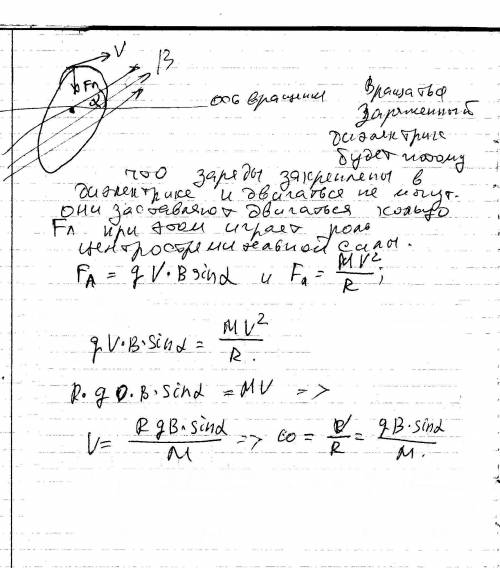 V
B
Fл
α
ось вращения
Вращаться
Заряженный
диэлектрик
будет потому
что заряды закреплены в
диэлектрике и двигаться не могут.
они заставляют двигаться кольцо
Fл при этом играет роль
центростремительной силы.
Fл = qV·B sinα и Fл = MV²/R ;
qV·B·sinα = MV²/R.
R·q·B·sinα = MV =>
V = RqB·sinα/M => ω = V/R = qB·sinα/M.